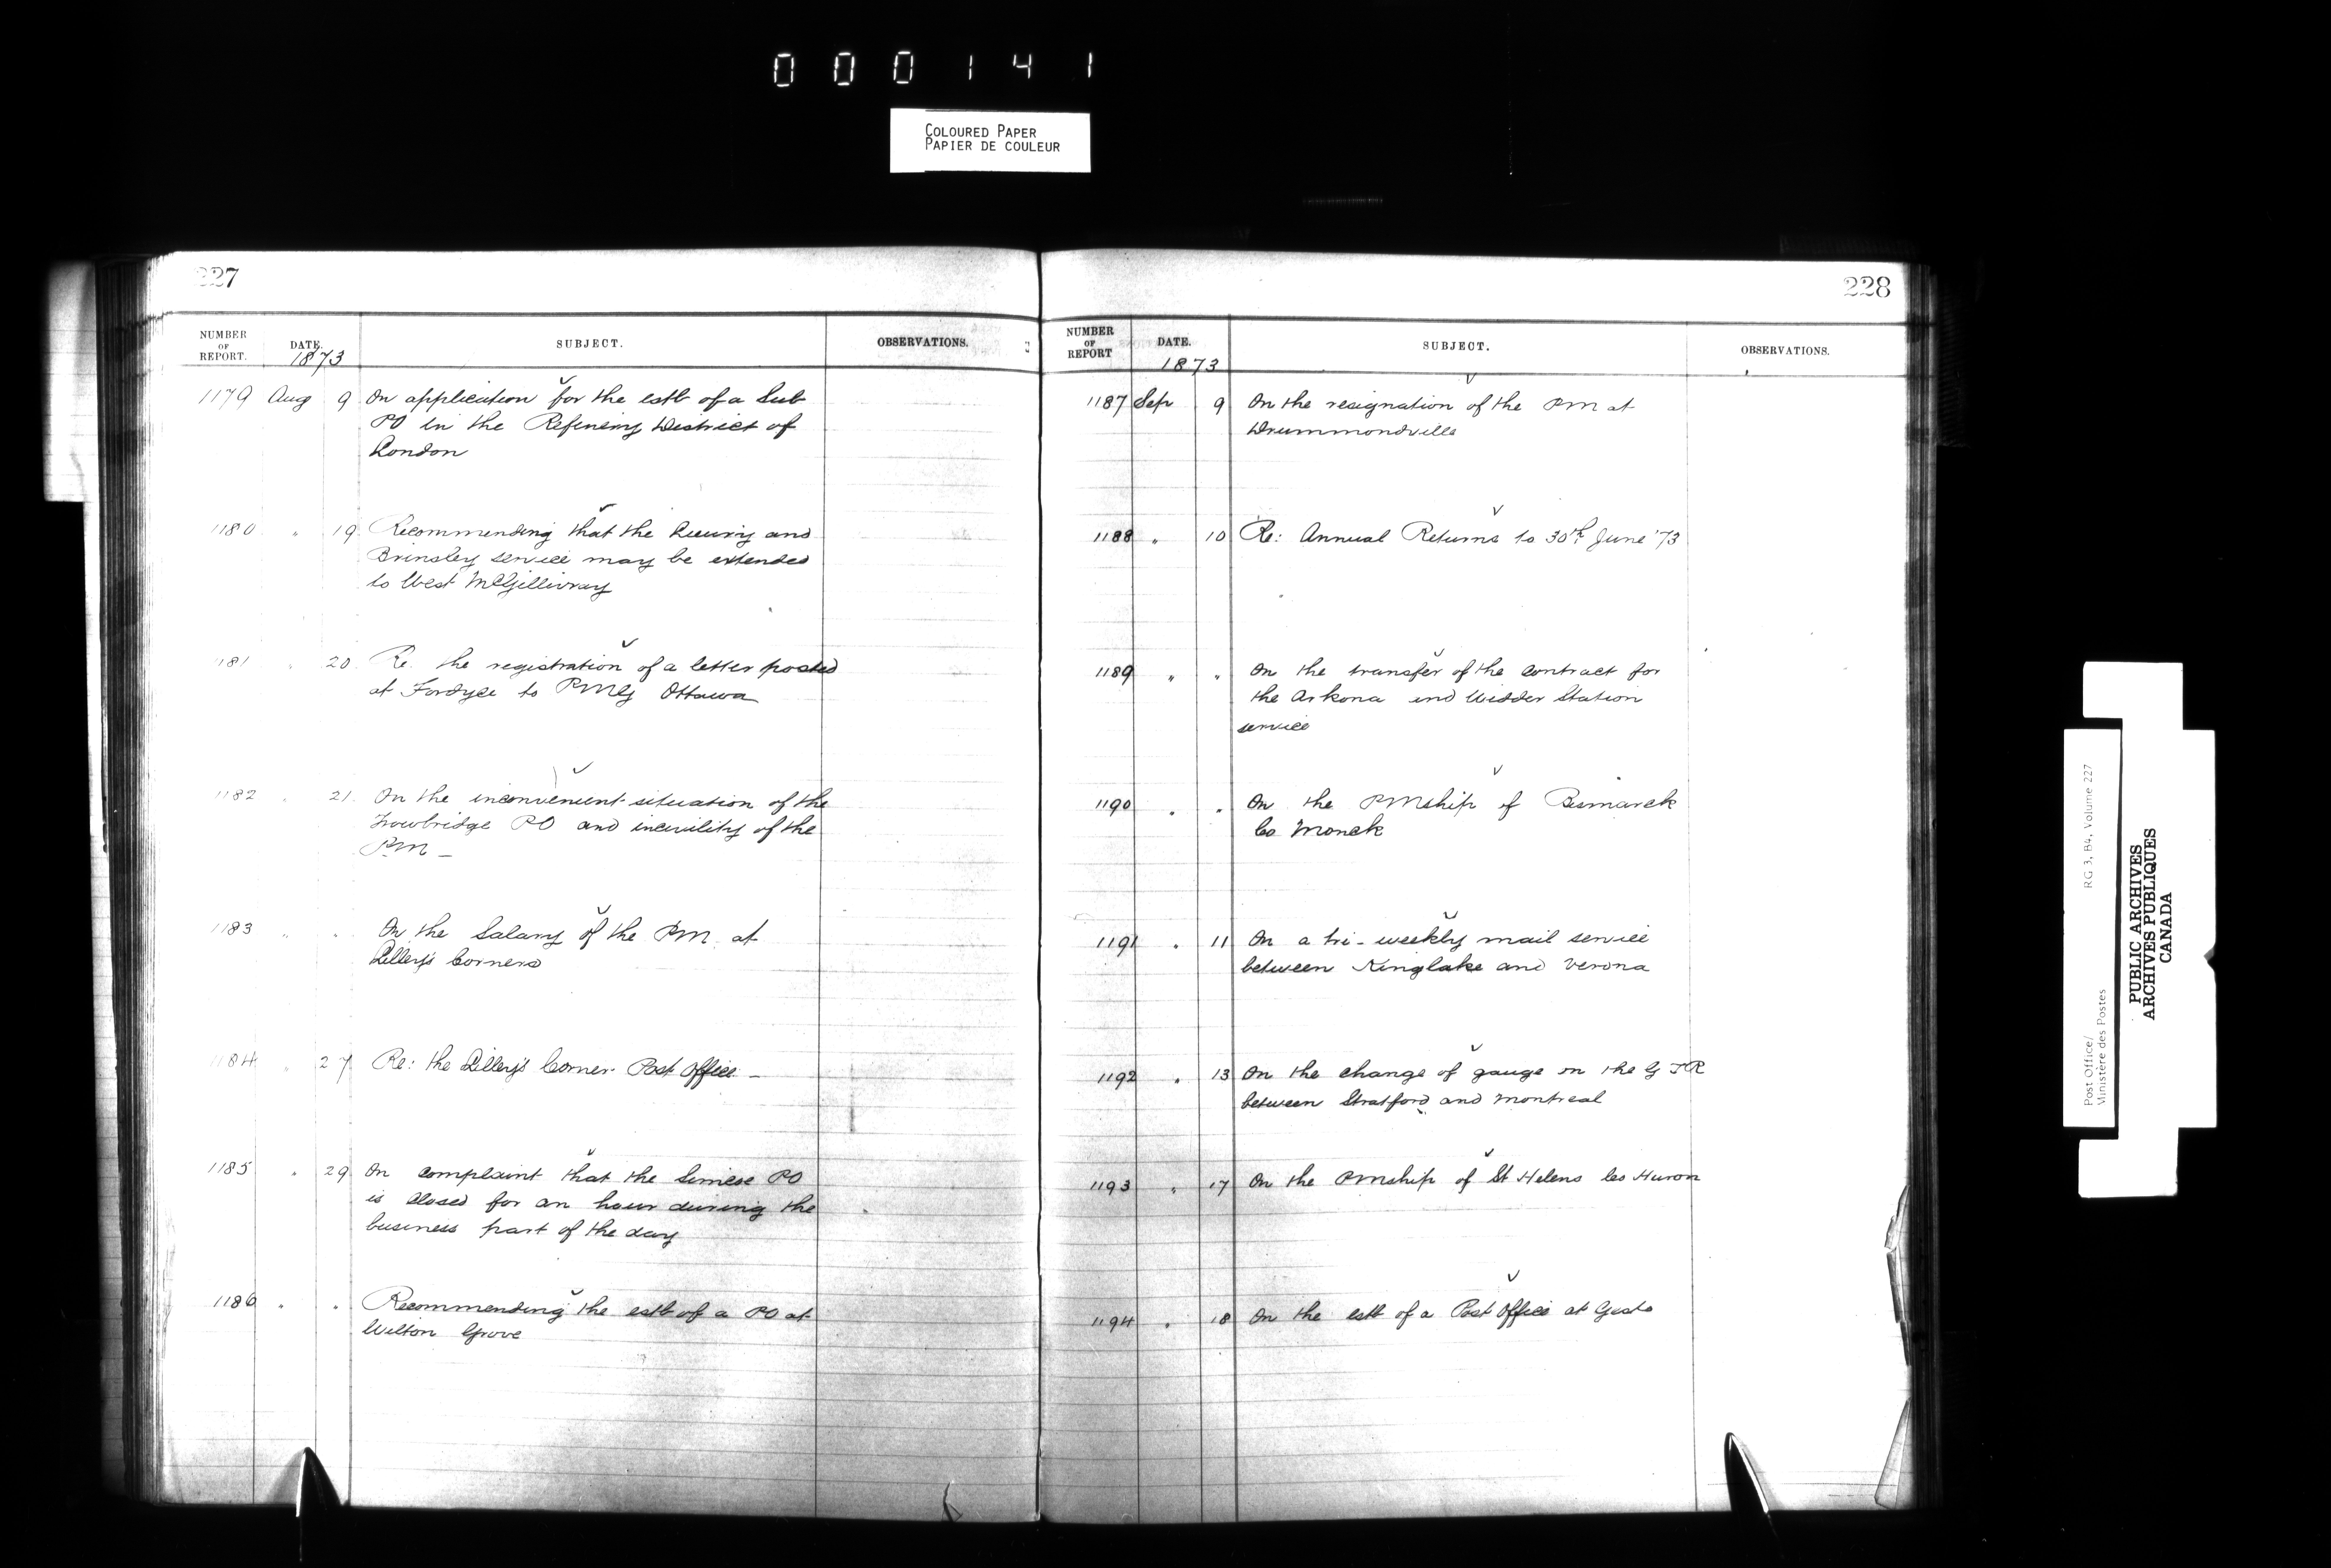 000141
COLOURED PAPER
PAPIER DE COULEUR
227
NUMBER OF REPORT. DATE. SUBJECT. OBSERVATIONS.
1873
1179 Aug 9 On application for the estb of a Sub
PO in the Refining District of
London
1180 " 19 Recommending that the and
Brinsley service may be extended
to West McGillivray
1181 " 20 Re. the registration of a letter posted
at Fordyce to PMG Ottawa
1182 " 21 On the inconvenient situation of the
Trowbridge PO and incivility of the
PM —
1183 " " On the Salary of the PM at
Lilley's Corners
1184 " 27 Re: the Lilley's Corner Post Office —
1185 " 29 On complaint that the Simcoe PO
is closed for an hour during the
business part of the day
1186 " " Recommending the estb of a PO at
Wilton Grove
228
NUMBER OF REPORT DATE. SUBJECT. OBSERVATIONS.
1873
1187 Sep 9 On the resignation of the PM at
Drummondville
1188 " 10 Re: Annual Returns to 30th June '73
1189 " " On the transfer of the contract for
the Arkona and Widder Station
service
1190 " " On the PMship of Bismarck
Co Monck
1191 " 11 On a tri-weekly mail service
between Kinglake and Verona
1192 " 13 On the change of gauge on the G T R
between Stratford and Montreal
1193 " 17 On the PMship of St Helens Co Huron
1194 " 18 On the estb of a Post Office at Gesto
Post Office/ RG 3, B4, Volume 227
Ministère des Postes
PUBLIC ARCHIVES
ARCHIVES PUBLIQUES
CANADA